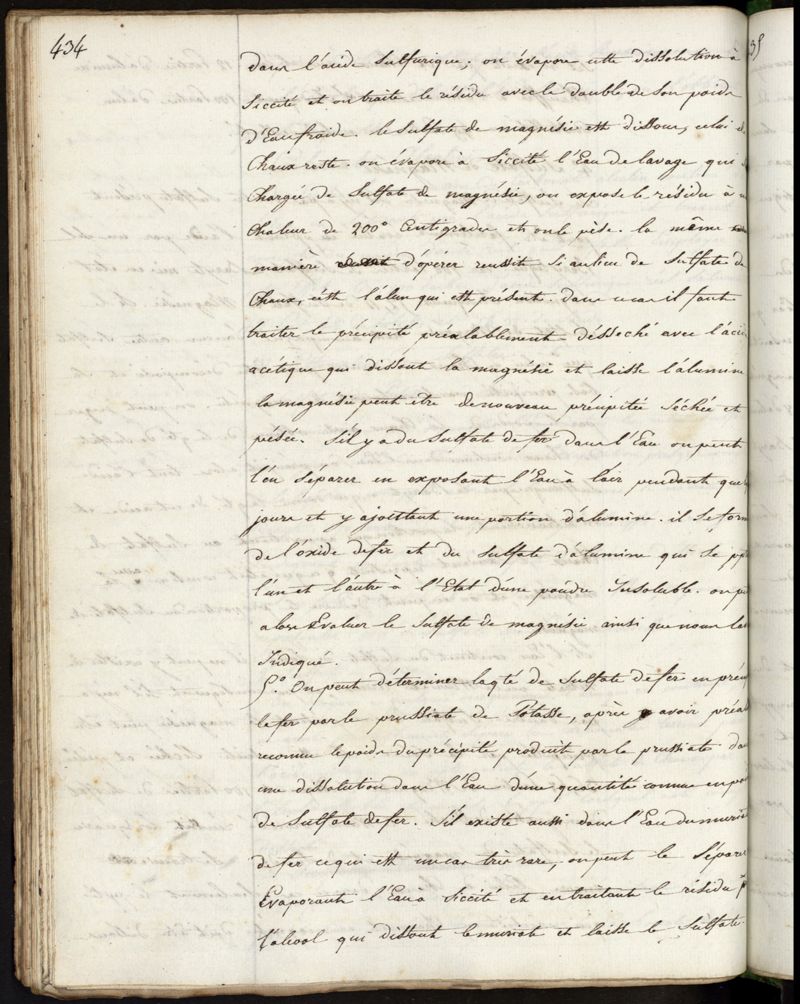 434
dans l'acide Sulfurique; on évapore cette dissolution à
Siccité et on traite le résidu avec le double de Son poids
d'Eau froide. le Sulfate de magnésie est dissous, celui d
Chaux reste. on évapore à Siccité l'Eau de lavage qui
Chargée de Sulfate de magnésie, on expose le résidu à u
Chaleur de 200° Centigrades et on le pèse. la même
manière d'opérer reussit Si au lieu de Sulfate de
Chaux, c'est l'alun qui est présent. dans ce cas il faut
traiter le précipité préalablement désseché avec l'acid
acétique qui dissout la magnésie et laisse l'alumine
la magnésie peut être de nouveau précipitée Séchée et
pésée. S'il y a du Sulfate de fer dans l'Eau on peut
l'en Séparer en exposant l'Eau à l'air pendant quel
jours et y ajouttant une portion d'alumine. il Se form
de l'oxide de fer et du Sulfate d'alumine qui Se pp
l'un et l'autre à l'Etat d'une poudre Insoluble. on pe
alors Evaluer le Sulfate de magnésie ainsi que nous l'a
Indiqué.
5.° On peut déterminer la qté de Sulfate de fer en préci
le fer par le prussiate de Potasse, après y avoir préal
reconnu le poids du précipité produit par le prussiate da
une dissolution dans l'Eau d'une quantité connue en poi
de Sulfate de fer. S'il existe aussi dans l'Eau du muria
de fer ce qui est un cas très rare, on peut le Séparer
Evaporant l'Eau à Siccité et en traitant le résidu p
l'alcool qui dissout le muriate et laisse le Sulfate.